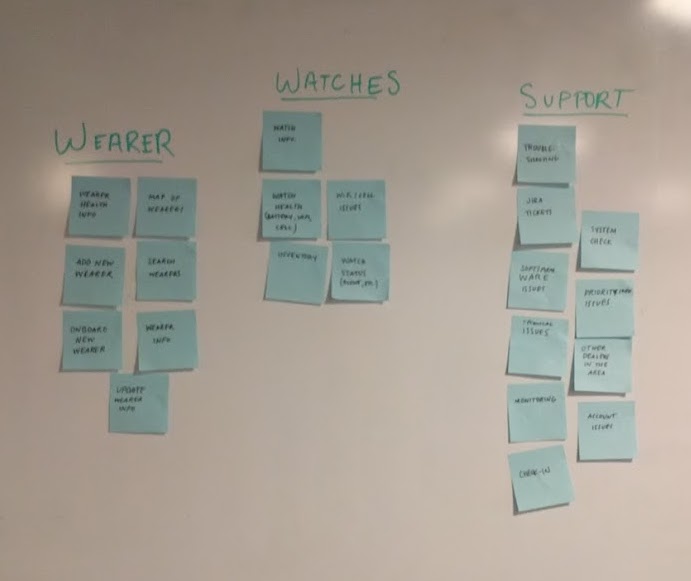 WEARER
WEARER
HEALTH
INFO
MAP OF
WEARERS
ADD NEW
WEARER
SEARCH
WEARERS
ONBOARD
NEW
WEARER
WEARER
INFO
UPDATE
WEARER
INFO
WATCHES
WATCH
INFO
WATCH
HEALTH
CELL)
ISSUES
INVENTORY
WATCH
STATUS
SUPPORT
TROUBLE-
SHOOTING
JIRA
TICKETS
SYSTEM
CHECK
WARE
ISSUES
ISSUES
TECHNICAL
ISSUES
OTHER
DEALERS
IN THE
AREA
MONITORING
ACCOUNT
ISSUES
CHECK-IN